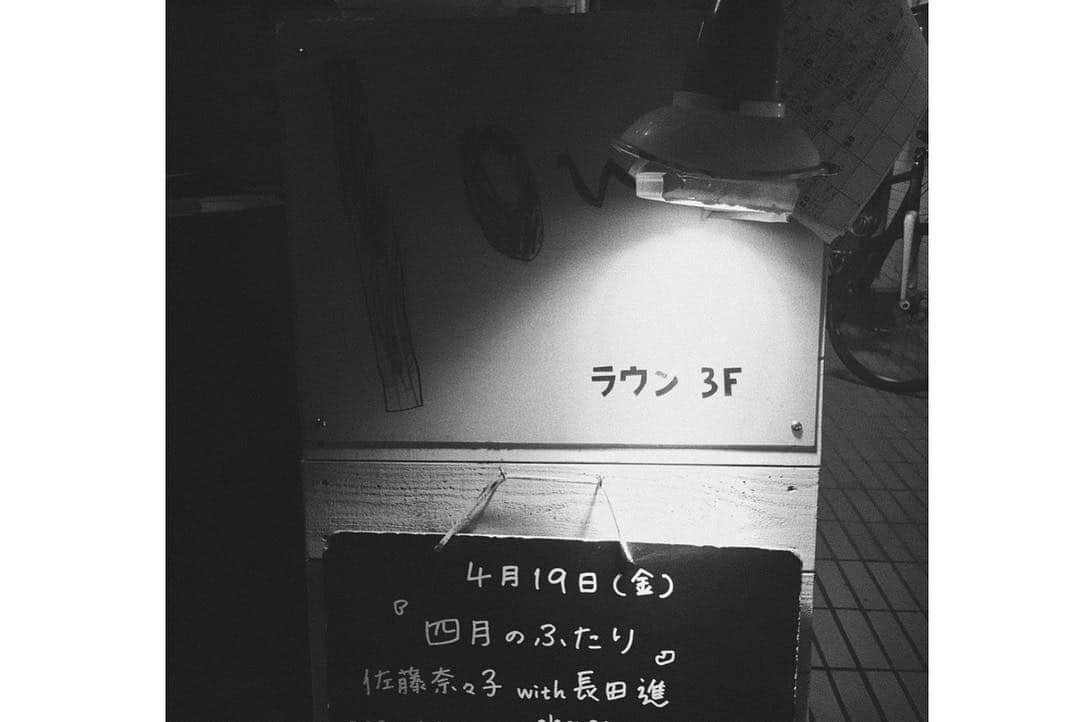 ラウン 3F
4月19日(金)
『四月のふたり』
佐藤奈々子 with 長田進